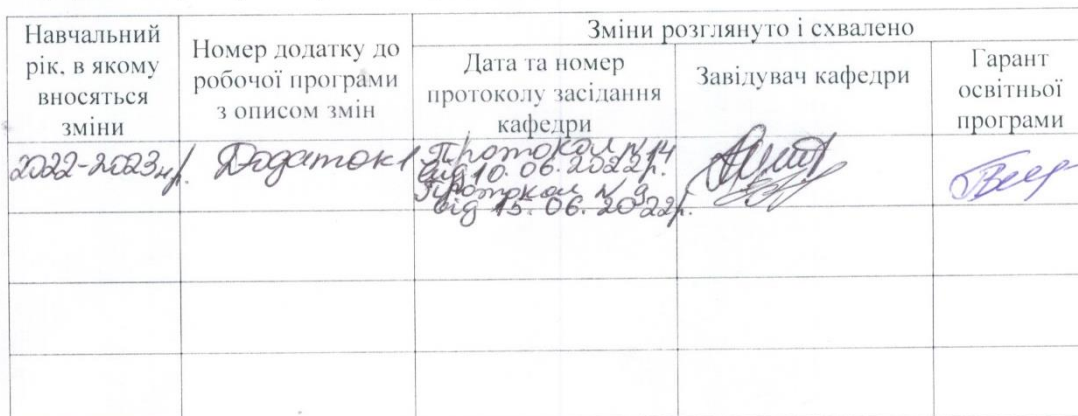 Навчальний
рік, в якому
вносяться
зміни
Номер додатку до
робочої програми
з описом змін
Зміни розглянуто і схвалено
Дата та номер
протоколу засідання
кафедри
Завідувач кафедри
Гарант
освітньої
програми
2022-2023н.р.
Додаток 1
Протокол №14
від 10.06.2022р.
Протокол № 9
від 15.06.2022р.